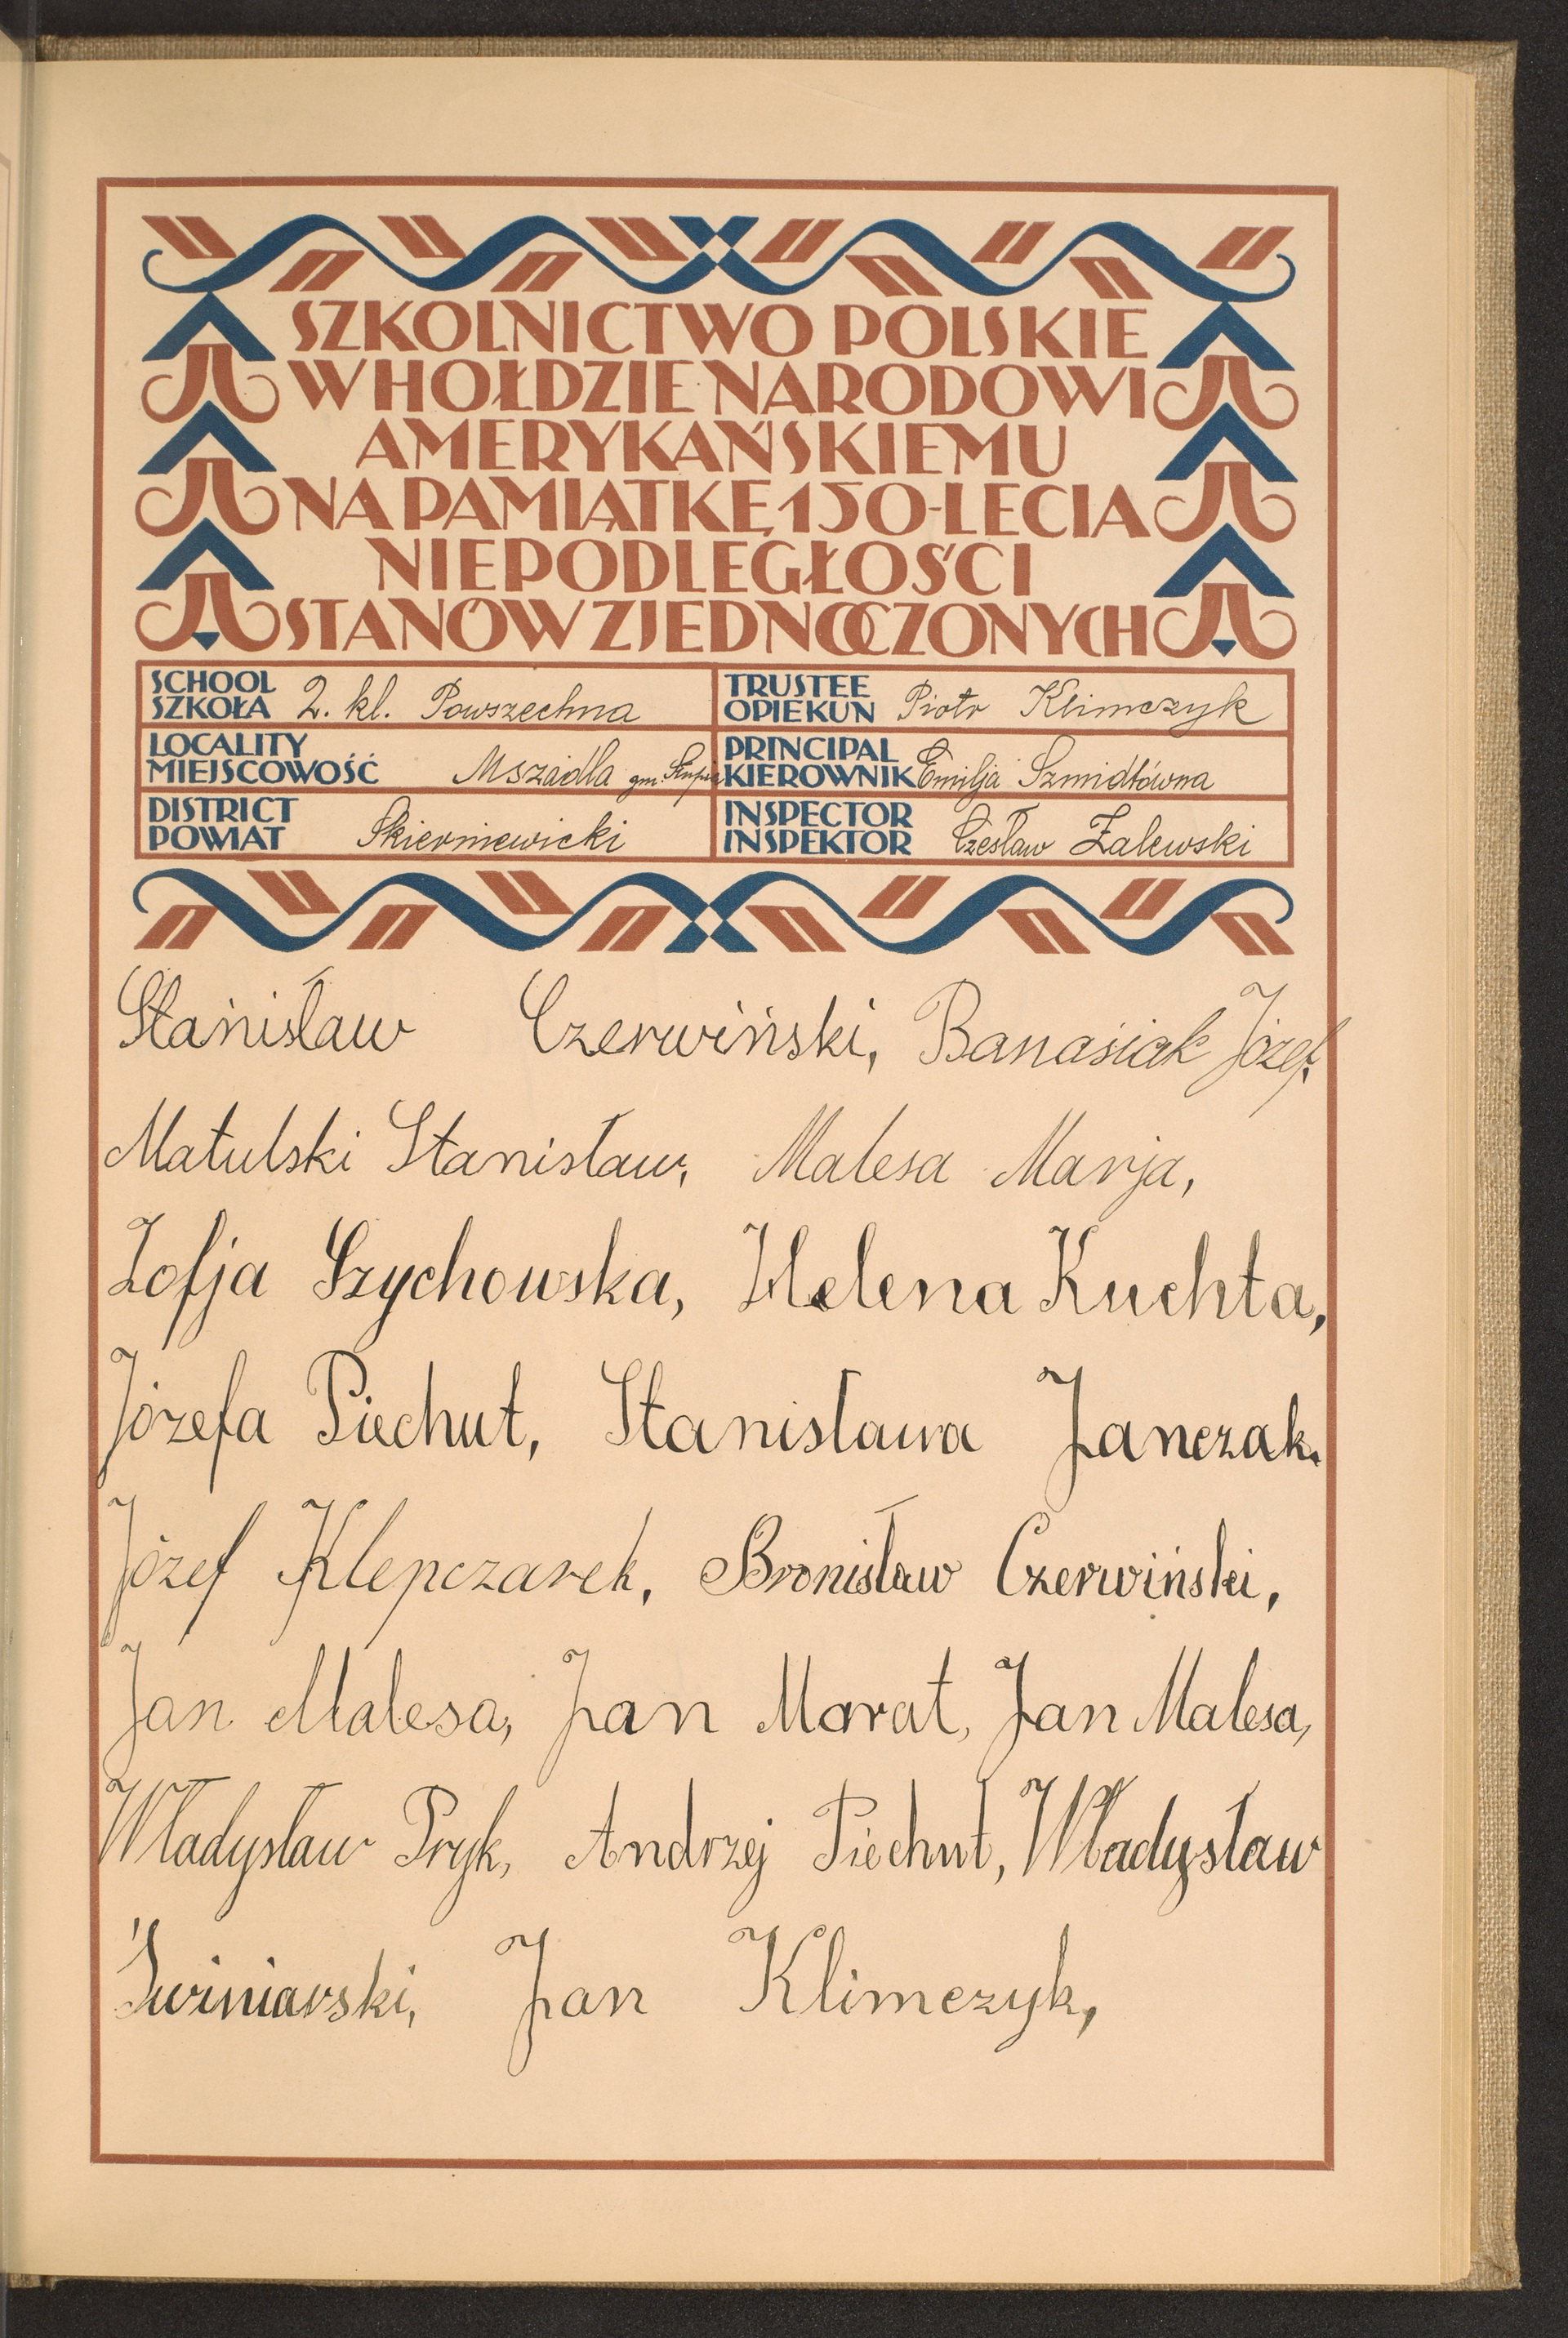 SZKOLNICTWO POLSKIE
W HOŁDZIE NARODOWI
AMERYKAŃSKIEMU
NA PAMIĄTKĘ 150-LECIA
NIEPODLEGŁOŚCI
STANÓW ZJEDNOCZONYCH
SCHOOL
SZKOŁA 2. kl. Powszechna
TRUSTEE
OPIEKUN Piotr Klimczyk
LOCALITY
MIEJSCOWOŚĆ Mszadla gm. Słupia
PRINCIPAL
KIEROWNIK Emilja Szmidtówna
DISTRICT
POWIAT Skierniewicki
INSPECTOR
INSPEKTOR Czesław Zalewski
Stanisław Czerwiński, Banasiak Józef,
Matulski Stanisław, Malesa Marja,
Zofja Szychowska, Helena Kuchta,
Józefa Piechut, Stanisława Janczak.
Józef Klepczarek, Bronisław Czerwiński,
Jan Malesa, Jan Morat, Jan Malesa,
Władysław Pryk, Andrzej Piechut, Władysław
Świniarski, Jan Klimczyk,